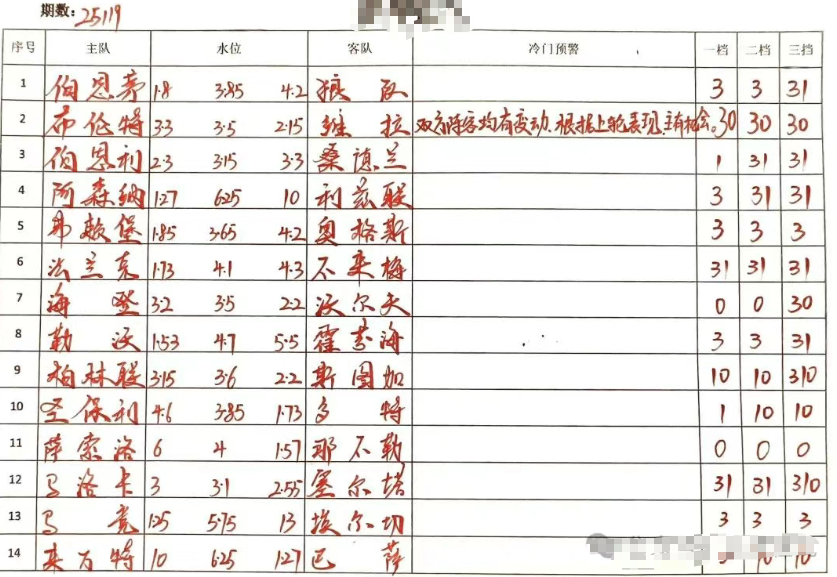 期数：25119
序号 主队 水位 客队 冷门预警 一档 二档 三挡
1 伯恩茅 1.8 3.85 4.2 狼队 3 3 31
2 布伦特 3.3 3.5 2.15 维拉 双方阵容均有变动.根据上轮表现.主有机会。30 30 30
3 伯恩利 2.3 3.15 3.3 桑德兰 1 31 31
4 阿森纳 1.27 6.25 10 利兹联 3 31 31
5 弗赖堡 1.85 3.65 4.2 奥格斯 3 3 3
6 法兰克 1.73 4.1 4.3 不来梅 31 31 31
7 海登 3.2 3.5 2.2 沃尔夫 0 0 30
8 勒沃 1.53 4.7 5.5 霍芬海 3 3 31
9 柏林联 3.15 3.6 2.2 斯图加 10 10 310
10 圣保利 4.6 3.85 1.73 多特 1 10 10
11 萨索洛 6 4 1.57 那不勒 0 0 0
12 马洛卡 3 3.1 2.55 塞尔塔 31 31 310
13 马竞 1.25 5.75 13 埃尔切 3 3 3
14 莱万特 10 6.25 1.27 巴萨 10 10